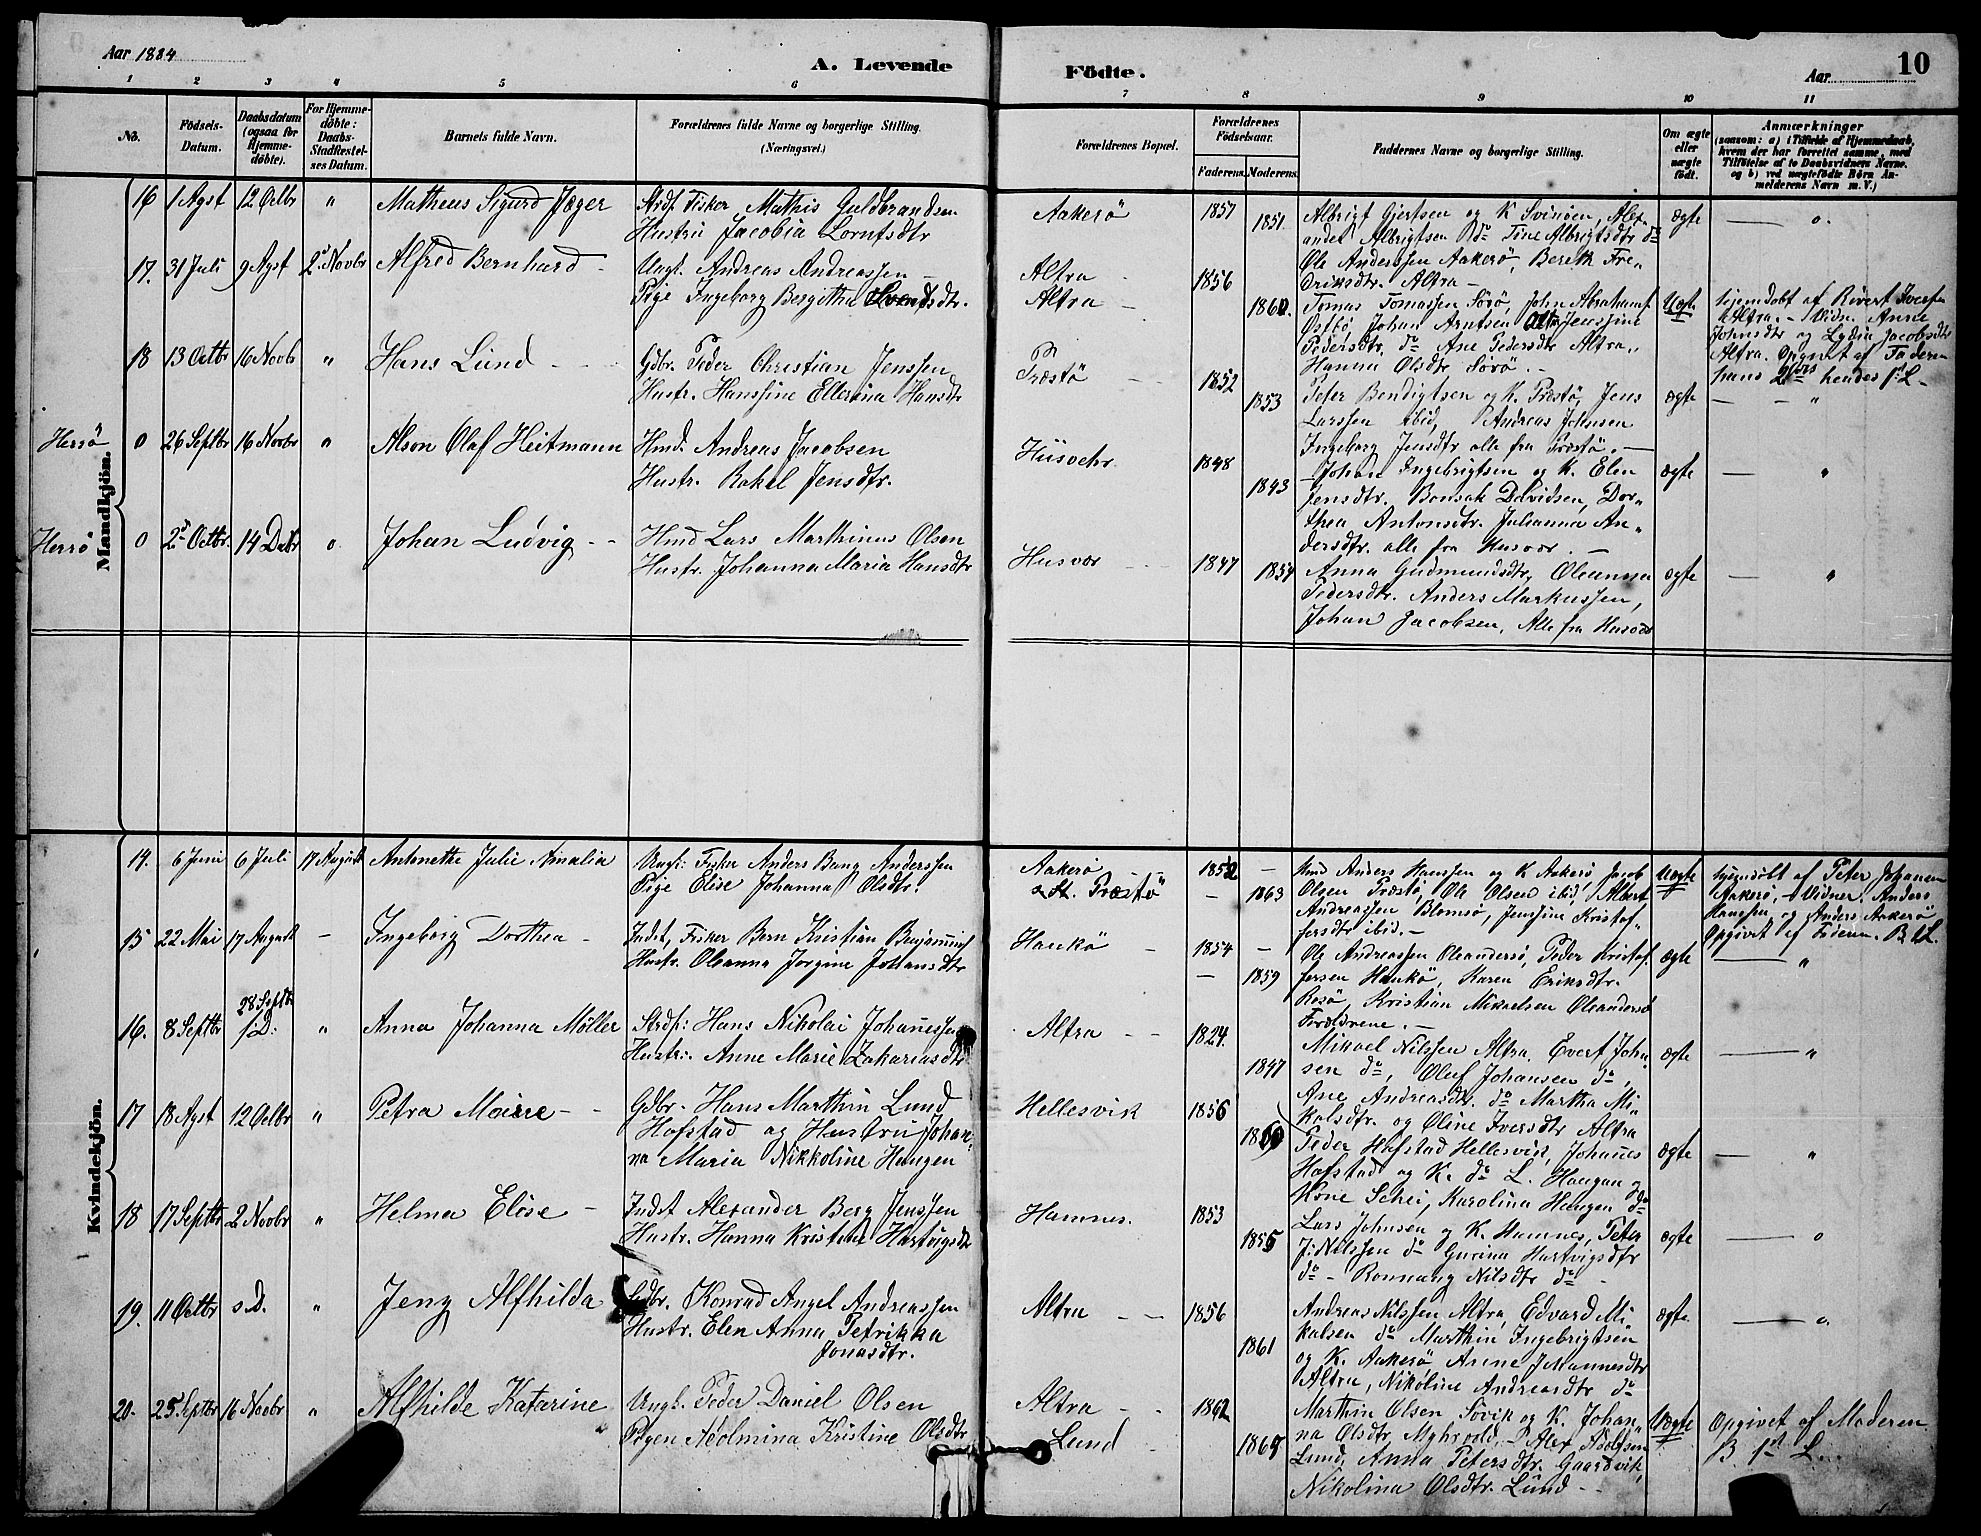 Aar 1884
A. Levende
Födte.
Aar
10
1 2 3 4 5 6 7 8 9 10 11
No.
Födsels-
Datum.
Daabsdatum
(ogsaa for
Hjemme-
döbte).
For Hjemme-
döbte:
Daabs-
Stadfæstel-
ses Datum.
Barnets fulde Navn.
Forældrenes fulde Navne og borgerlige Stilling.
(Næringsvei.)
Forældrenes Bopæl.
Forældrenes
Födselsaar.
Faderens. Moderens.
Faddernes Navne og borgerlige Stilling.
Om ægte
eller
uægte
födt.
Anmærkninger
(saasom: a) i Tilfælde af Hjemmedaab,
hvem der har forrettet samme, med
Tilföielse af to Daabsvidners Navne.
og b) ved uægtefödte Börn An-
melderens Navn m. V.)
Mandkjön.
16 1 Agst 12 Octbr " Matheus Sigurd Jæger
Strdf Fisker Mathis Guldbrandsen
Hustru Jacobia Lorntsdtr
Aakerö 1857 1851.
Albrigt Gjertsen og K Svinöen, Alex-
ander Albrigtsen do Tine Albrigtsdtr do
Ole Anderssen Aakerö, Bereth Fre-
driksdtr. Altra –
ægte — o.
17. 31 Juli 9 Agst 2d Novbr Alfred Bernhard –
Ungk. Andreas Andreassen –
Pige Ingeborg Bergitha Svendsdtr.
Altra –
Altra – 1856 1860.
Tomas Tomassen Sörö, John Abrahams.
Östbö, Johan Arntsen Altra Jenssine
Pedersdtr. do Ane Pedersdtr Altra,
Hanna Olsdtr Sörö. –
Uægte
hjemdöbt af Rivert Iversen
Altra. – Vidn. Anne
Johnsdtr og Lydia Jacobsdtr
Altra. Opgivet af Faderen
hans 2det hendes 1st L –
18 13 Octbr 16 Novbr " Hans Lund – –
Gdbr. Peder Christian Jenssen
Hustr. Hanssine Ellerina Hansdtr
Præstö – – 1852 1853
Peter Bendigtsen og K. Præstö, Jens
Larssen ibid, P Andreas Johnsen
Ingeborg Jensdtr alle fra Præstö. –
ægte — "
Herrö 0 26 Septbr 16 Novbr " Alson Olaf Heitmann
Hmd. Andreas Jacobsen
Hustr. Rakel Jensdtr.
Husvær 1848 1843
Johan Ingebrigtsen og K. Elen
Jensdtr. Bonsak Davidsen, Dor-
thea Antonsdtr. Julianna An-
dersdtr. alle fra Husvær. –
ægte — "
Herrö 0 2d Octbr. 14 Decbr o. Johan Ludvig – –
Hmd Lars Marthinus Olsen
Hustr. Johanna Maria Hansdtr
Husvær – – – 1847 1854
Anna Gudmundsdtr, Oleanna
Pedersdtr. Anders Markussen,
Johan Jacobsen, Alle fra Husvær
ægte — "
Kvindekjön.
14. 6 Juni 6 Juli 17 August Antonette Julie Amalia
Ungk: Fisker Anders Bang Anderssen
Pige Elise Johanna Olsdtr.
Aakerö
Præstö 1852 – 1863
Hmd Anders Hanssen og K Aakerö Jacob
Olsen Præstö, Ole Olsen ibid, Albert
Andreassen Blomsö, Jenssine Kristof-
fersdtr ibid. –
Uægte
hjemdöbt af Peter Johansen
Aakerö, – Vidner. Anders
Hanssen og Anders Aakerö
Opgivet af Faderen. B 1st L.
15 22 Mai 17 August – Ingeborg Dorthea –
Indst, Fisker Bern Kristian Benjamins.
Hustr. Oleanna Jorgine Johansdtr
Haukö – 1854 – 1859
Ole Andreassen Oleandersö, Peder Kristof-
fersen Haukö, Karen Eriksdtr.
Rosö, Kristian Mikaelsen Oleandersö
Forældrene. –
ægte — "
16. 8 Septbr 28 Septbr
s D: " Anna Johanna Möller
Strdf: Hans Nikolai Johanessen
Hustr: Anne Marie Zakariasdtr
Altra – – 1824. 1847
Mikael Nilssen Altra, Evert John-
sen do, Oluf Johansen do,
Ane Andreasdtr. do Martha Mi-
kalsdtr. og Oline Iversdtr Altra
ægte — "
17 18 Agst 12 Octbr " Petra Moirre – –
Gdbr. Hans Marthin Lund
Hofstad og Hustru Johan-
na Maria Nikkoline Haugen
Hellesvik 1856 1860
Peder Hofstad Hellesvik, Johanes
Hofstad og K. do L. Haugan og
Kone Schei, Karolina Haugen do
ægte — "
18 17 Septbr 2 Novbr " Helma Elise –
Indst Alexander Berg Jenssen
Hustr. Hanna Kristine Hartvigsdtr
Hamnes. 1853 1855
Lars Johnsen og K. Hamnes, Peter
J: Nilssen do Gurina Hartvigsdtr
do – Ronnaug Nilsdtr do –
ægte — o
19. 11 Octbr s.D. " Jeny Alfhilda
Gdbr. Konrad Angel Andreassen
Hustr. Elen Anna Petrikka
Jonasdtr.
Altra – – 1856 1861
Andreas Nilssen Altra, Edvard Mi-
kalsen do Marthin Ingebrigtsen
og K. Aakerö, Anne Johannesdtr
Altra, Nikoline Andreasdtr do
ægte — o
20. 25 Septbr 16 Novbr " Alfhilde Katarine
Ungk. Peder Daniel Olsen
Pigen Adolmina Kristine Olsdtr
Altra – –
Lund – 1862 1865
Marthin Olsen Sövik og K. Johan-
na Olsdtr. Myhrvold, – Alex Adolfsen
Lund, Anna Petersdtr. Gaardvik,
Nikolina Olsdtr. Lund – –
Uægte
Opgivet af Moderen
B 1st L.